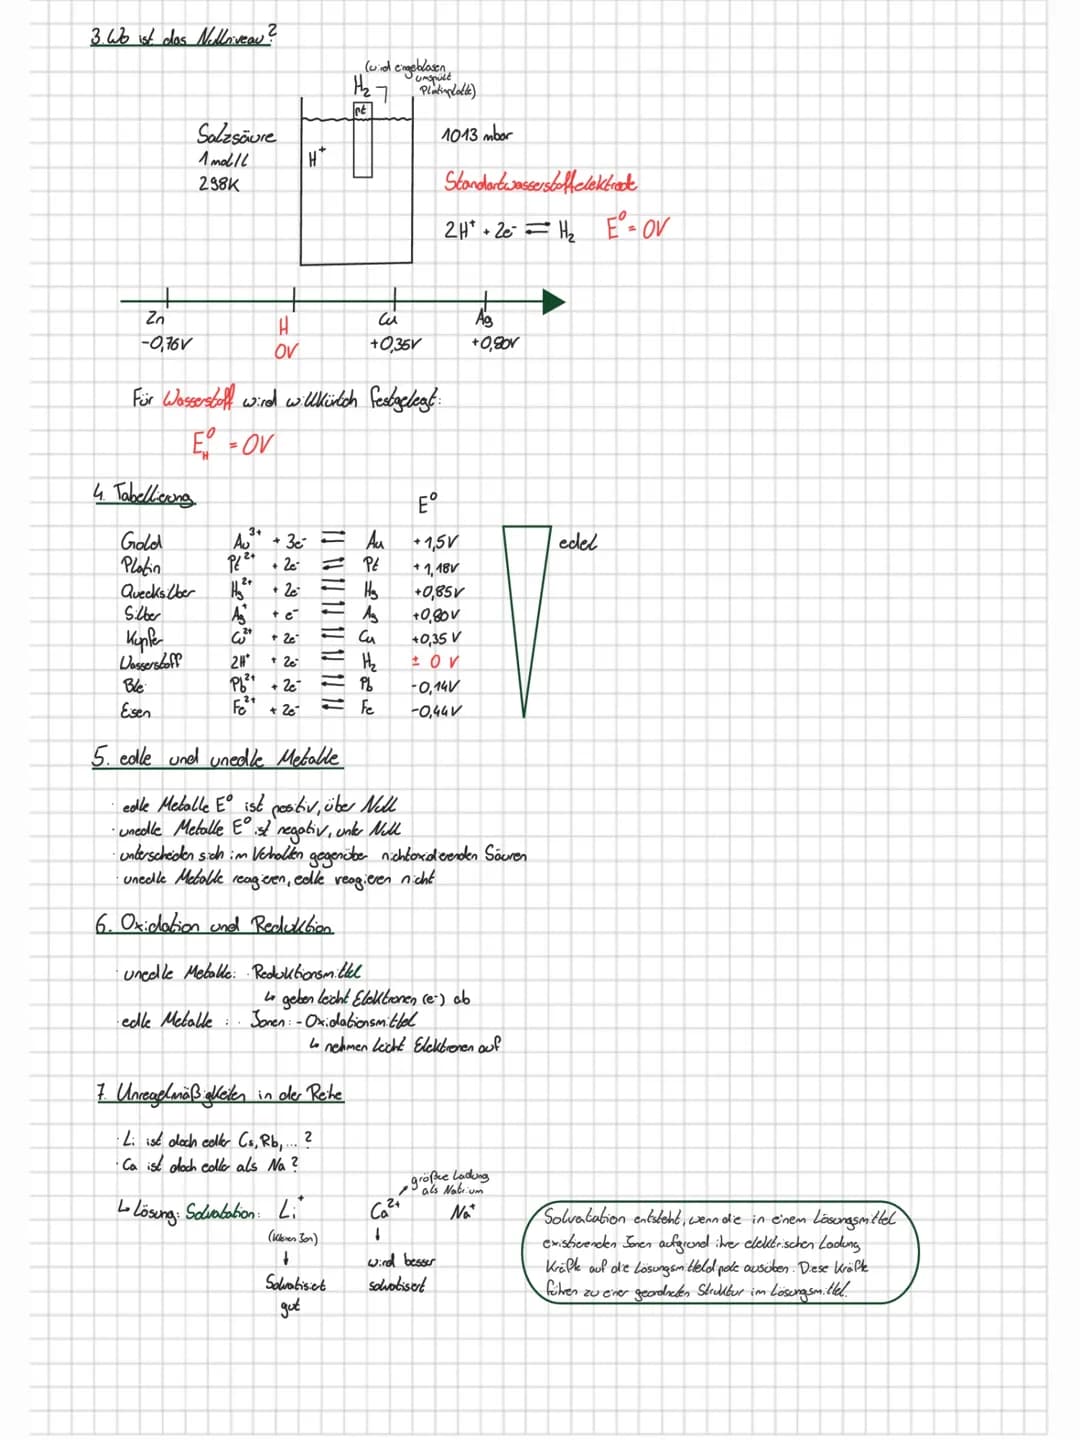 3. Wo ist das Nullniveau?
(wird eingeblasen
umspült
Platinplatte)
H₂
pt
Salzsäure
1 mol/l
298K
H⁺
1013 mbar
Standartwasserstoffelektrode
2H⁺ + 2e⁻ ⇌ H₂ E⁰ = 0V
Zn H Cu Ag
-0,76V 0V +0,35V +0,80V
Für Wasserstoff wird willkürlich festgelegt:
E⁰H = 0V
4. Tabellierung
E⁰
Gold Au³⁺ + 3e⁻ ⇌ Au +1,5V edel
Platin Pt²⁺ + 2e⁻ ⇌ Pt +1,18V
Quecksilber Hg²⁺ + 2e⁻ ⇌ Hg +0,85V
Silber Ag⁺ + e⁻ ⇌ Ag +0,80V
Kupfer Cu²⁺ + 2e⁻ ⇌ Cu +0,35 V
Wasserstoff 2H⁺ + 2e⁻ ⇌ H₂ ± 0 V
Blei Pb²⁺ + 2e⁻ ⇌ Pb -0,14V
Eisen Fe²⁺ + 2e⁻ ⇌ Fe -0,44V
5. edle und unedle Metalle
· edle Metalle E⁰ ist positiv, über Null
· unedle Metalle E⁰ ist negativ, unter Null
· unterscheiden sich im Verhalten gegenüber nichtoxidierenden Säuren
· unedle Metalle reagieren, edle reagieren nicht
6. Oxidation und Reduktion
· unedle Metalle: · Reduktionsmittel
↳ geben leicht Elektronen (e⁻) ab
· edle Metalle : · Ionen: - Oxidationsmittel
↳ nehmen leicht Elektronen auf
7. Unregelmäßigkeiten in der Reihe
· Li ist doch edler Cs, Rb, ... ?
· Ca ist doch edler als Na ?
größere Ladung
als Natrium
↳ Lösung: Solvatation: Li⁺ Ca²⁺ Na⁺
(kleines Ion)
wird besser
Solvatisiert solvatisiert
gut
Solvatation entsteht, wenn die in einem Lösungsmittel
existierenden Ionen aufgrund ihrer elektrischen Ladung
Kräfte auf die Lösungsmitteldipole ausüben. Diese Kräfte
führen zu einer geordneten Struktur im Lösungsmittel.